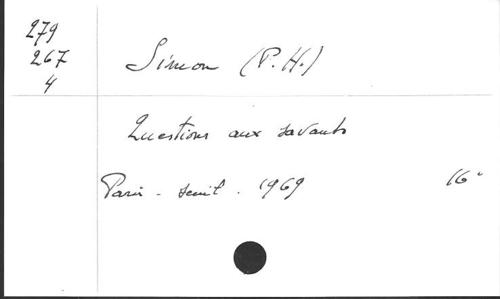 279
267
4
Simon (P. H.)
Questions aux savants
Paris - seuil. 1969 16°